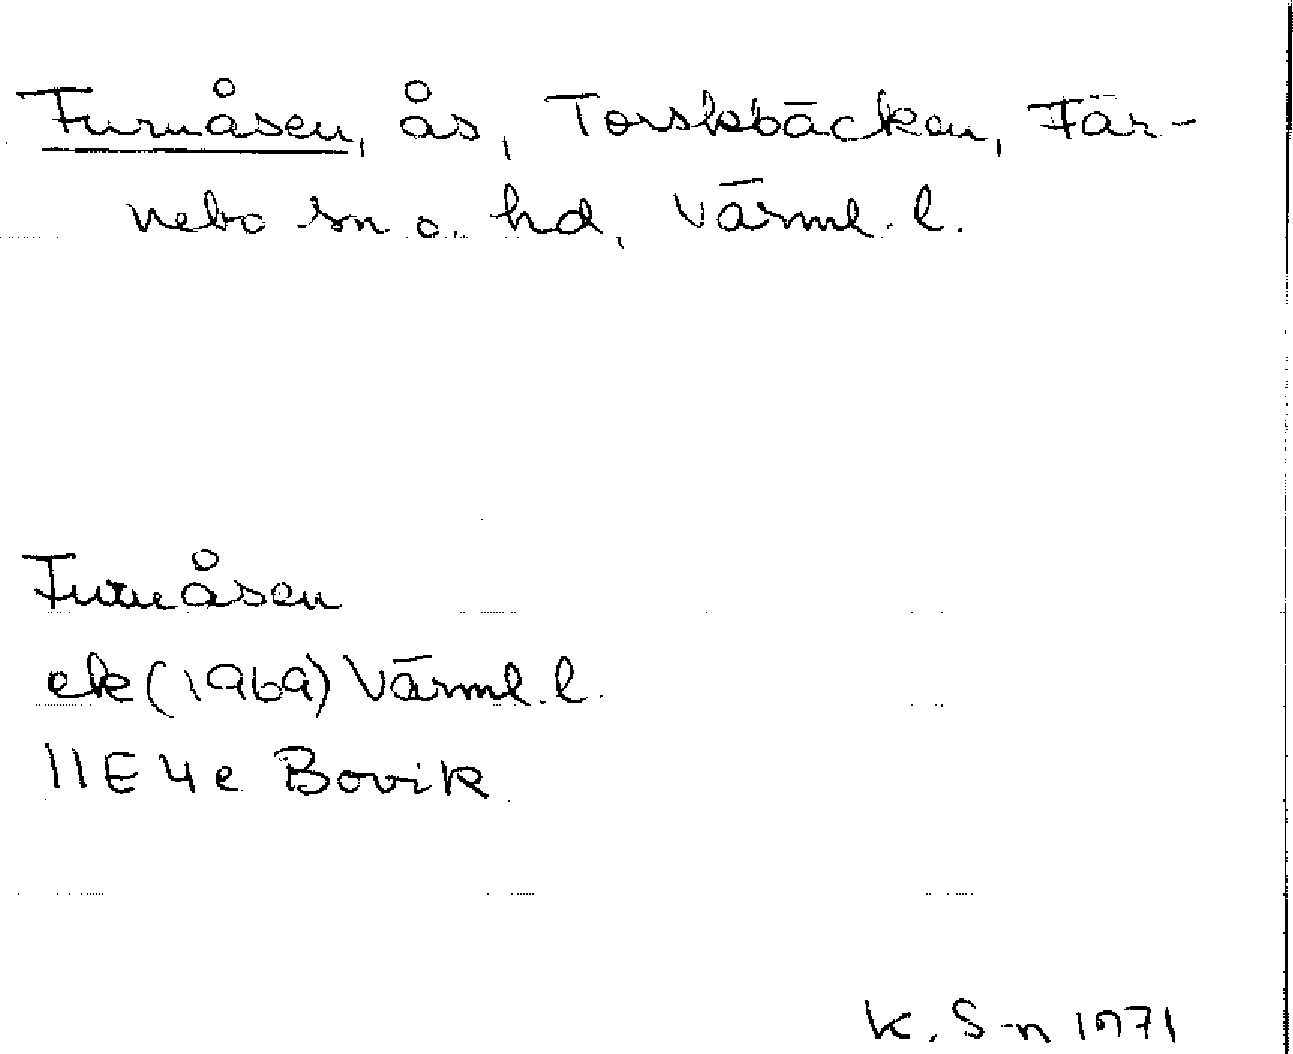 Furnåsen, ås, Torskbäcken, Fär-
nebo sn o. hd, Värml. l.
Furnåsen
ek (1969) Värml. l.
11E 4e Bovik
K. S-n 1971